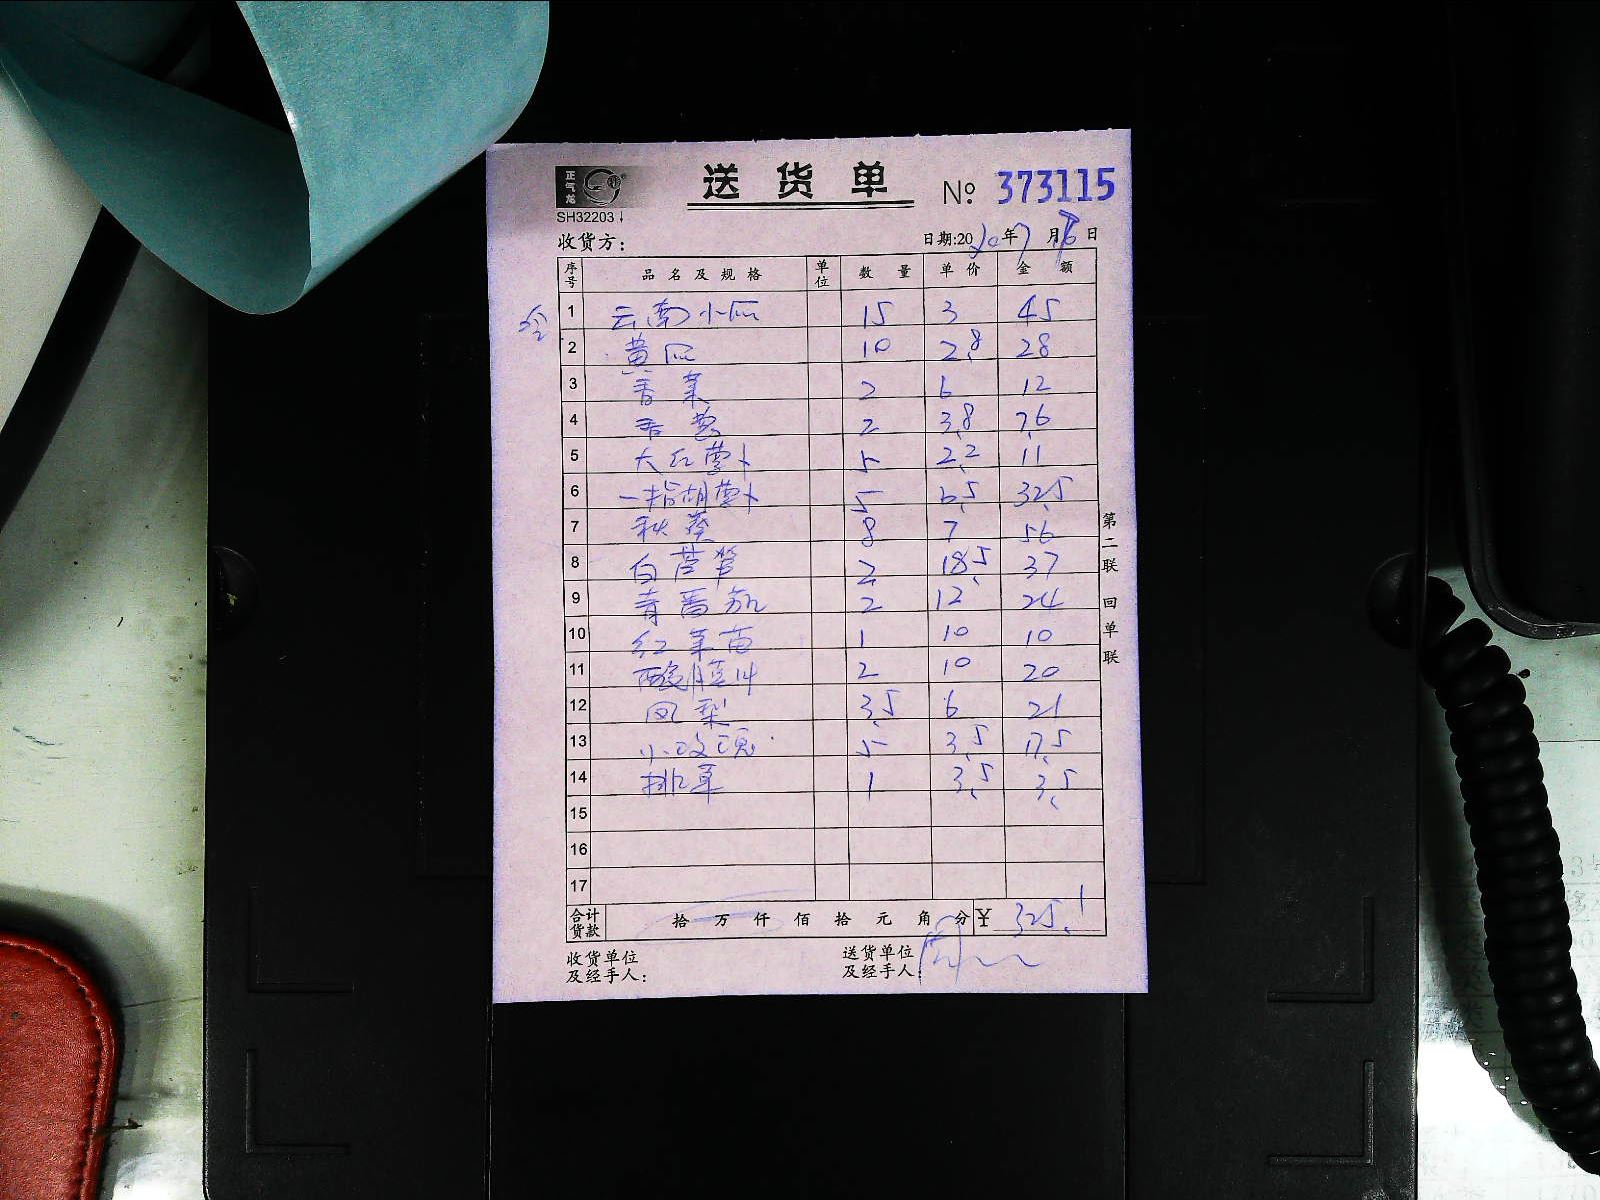 正气龙
送货单
№ 373115
SH32203↓
收货方：
日期:2020年7月16日
序号 品名及规格 单位 数量 单价 金额
1 云南小瓜 15 3 45
2 黄瓜 10 2.8 28
3 香菜 2 6 12
4 香葱 2 3.8 7.6
5 大红萝卜 5 2.2 11
6 一指胡萝卜 5 6.5 32.5
7 秋葵 8 7 56
8 白芦笋 2 18.5 37
9 青番茄 2 12 24
10 红菜苗 1 10 10
11 酸 2 10 20
12 凤梨 3.5 6 21
13 小玫瑰 5 3.5 17.5
14 排草 1 3.5 3.5
15
16
17
合计货款 拾万仟佰拾元角分 ¥ 325.1
收货单位及经手人：
送货单位及经手人
第二联 回单联